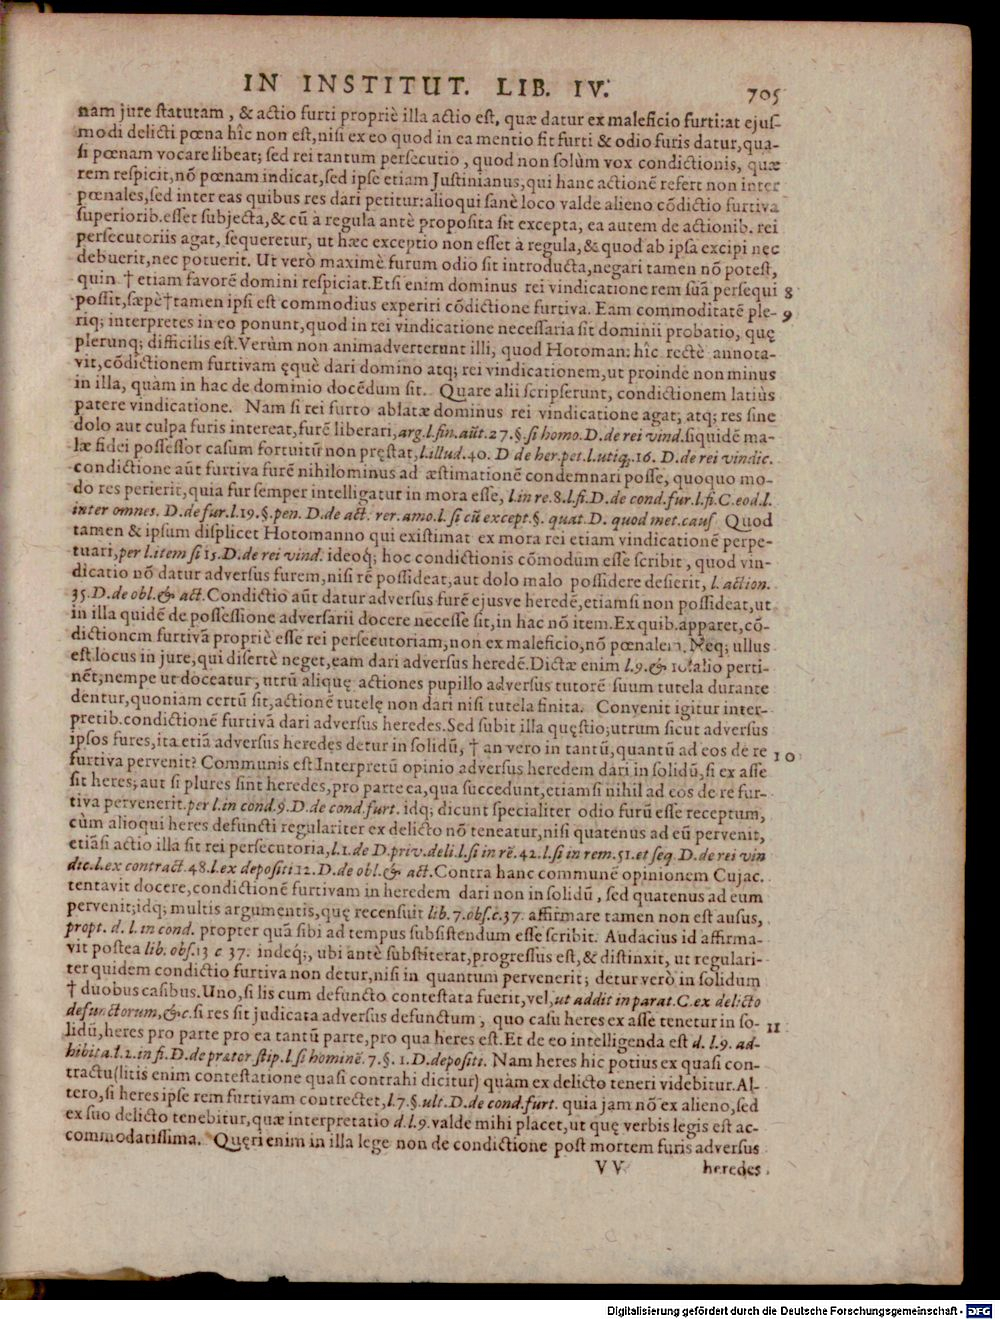 IN INSTITUT. LIB. IV. 705
nam jure statutam, & actio furti propriè illa actio est, quæ datur ex maleficio furti:at ejus-
modi delicti pœna hîc non est,nisi ex eo quod in ea mentio fit furti & odio furis datur,qua-
si pœnam vocare libeat; sed rei tantum persecutio, quod non solùm vox condictionis, quæ
rem respicit,nõ pœnam indicat,sed ipse etiam Justinianus,qui hanc actionẽ refert non inter
pœnales,sed inter eas quibus res dari petitur:alioqui sanè loco valde alieno cõdictio furtiva
superiorib.esset subjecta,& cũ à regula antè proposita sit excepta, ea autem de actionib. rei
persecutoriis agat, sequeretur, ut hæc exceptio non esset à regula,& quod ab ipsa excipi nec
debuerit,nec potuerit. Ut verò maximè furum odio sit introducta,negari tamen nõ potest,
quin † etiam favorẽ domini respiciat.Etsi enim dominus rei vindicatione rem suã persequi 8
possit,sæpè†tamen ipsi est commodius experiri cõdictione furtiva. Eam commoditatẽ ple- 9
riq; interpretes in eo ponunt,quod in rei vindicatione necessaria sit dominii probatio, quę
plerunq; difficilis est.Verùm non animadverterunt illi, quod Hotoman: hîc rectè annota-
vit,cõdictionem furtivam ęquè dari domino atq; rei vindicationem,ut proinde non minus
in illa, quàm in hac de dominio docẽdum sit. Quare alii scripserunt, condictionem latiùs
patere vindicatione. Nam si rei furto ablatæ dominus rei vindicatione agat; atq; res sine
dolo aut culpa furis intereat,furẽ liberari,arg.l.fin.aũt.27.§.si homo.D.de rei vind.siquidẽ ma-
læ fidei possessor casum fortuitũ non pręstat,l.illud.40. D de her.pet.l.utiq;.16. D.de rei vindic.
condictione aũt furtiva furẽ nihilominus ad æstimationẽ condemnari posse, quoquo mo-
do res perierit,quia fur semper intelligatur in mora esse, l.in re.8.l.fi.D.de cond.fur.l.fi.C.eod.l.
inter omnes. D.de fur.l.19.§.pen. D.de act. rer. amo.l. si cũ except.§. quat.D. quod met.caus Quod
tamen & ipsum displicet Hotomanno qui existimat ex mora rei etiam vindicationẽ perpe-
tuari,per l.item si 15.D.de rei vind. ideoq́; hoc condictionis cõmodum esse scribit, quod vin-
dicatio nõ datur adversus furem,nisi rẽ possideat,aut dolo malo possidere desierit, l. action.
35.D.de obl.& act.Condictio aũt datur adversus furẽ ejusve heredẽ,etiamsi non possideat,ut
in illa quidẽ de possessione adversarii docere necesse sit,in hac nõ item.Ex quib.apparet,cõ-
dictionem furtivã propriè esse rei persecutoriam,non ex maleficio,nõ pœnalem.Neq; ullus
est locus in jure,qui disertè neget,eam dari adversus heredẽ.Dictæ enim l.9.& 10.alio perti-
nẽt;nempe ut doceatur, utrũ aliquę actiones pupillo adversus tutorẽ suum tutela durante
dentur,quoniam certũ sit,actionẽ tutelę non dari nisi tutela finita. Convenit igitur inter-
pretib.condictionẽ furtivã dari adversus heredes.Sed subit illa quęstio;utrum sicut adversus
ipsos fures,ita etiã adversus heredes detur in solidũ, † an vero in tantũ,quantũ ad eos de re
furtiva pervenit? Communis est Interpretũ opinio adversus heredem dari in solidũ,si ex asse 10
sit heres; aut si plures sint heredes,pro parte ea,qua succedunt,etiamsi nihil ad eos de re fur-
tiva pervenerit.per l.in cond.9.D.de cond.furt. idq; dicunt specialiter odio furũ esse receptum,
cùm alioqui heres defuncti regulariter ex delicto nõ teneatur,nisi quatenus ad eũ pervenit,
etiãsi actio illa sit rei persecutoria,l.1.de D.priv.deli.l.si in rẽ.42.l.si in rem.51.et seq D.de rei vin
dic.l.ex contract.48.l.ex depositi 12.D.de obl.& act.Contra hanc communẽ opinionem Cujac.
tentavit docere,condictionẽ furtivam in heredem dari non in solidũ, sed quatenus ad eum
pervenit;idq; multis argumentis,quę recensuit lib.7.obs.c.37. affirmare tamen non est ausus,
propt. d. l. in cond. propter quã sibi ad tempus subsistendum esse scribit. Audacius id affirma-
vit postea lib. obs.13 c 37. indeq́;, ubi antè substiterat,progressus est,& distinxit, ut regulari-
ter quidem condictio furtiva non detur,nisi in quantum pervenerit; detur verò in solidum
† duobus casibus.Uno,si lis cum defuncto contestata fuerit,vel,ut addit in parat.C.ex delicto
defunctorum,&c.si res sit judicata adversus defunctum, quo casu heres ex asse tenetur in so- 11
lidũ,heres pro parte pro ea tantũ parte,pro qua heres est.Et de eo intelligenda est d. l.9. ad-
hibita.l.2.in fi.D.de prætor stip.l.si hominẽ.7.§.1.D.depositi. Nam heres hic potius ex quasi con-
tractu(litis enim contestatione quasi contrahi dicitur) quàm ex delicto teneri videbitur.Al-
tero,si heres ipse rem furtivam contrectet,l.7.§.ult.D.de cond.furt. quia jam nõ ex alieno,sed
ex suo delicto tenebitur,quæ interpretatio d.l.9.valde mihi placet,ut quę verbis legis est ac-
commodatissima. Quęri enim in illa lege non de condictione post mortem furis adversus
VV heredes,
Digitalisierung gefördert durch die Deutsche Forschungsgemeinschaft - DFG